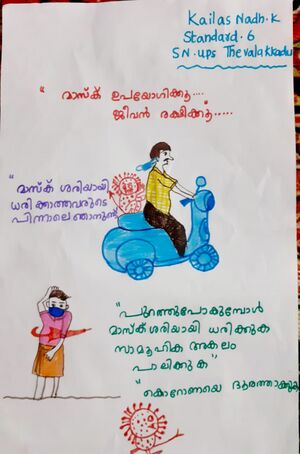 Kailas Nadh.K
Standard.6
S.N.ups Thevalakkadu
"മാസ്ക് ഉപയോഗിക്കൂ....
ജീവൻ രക്ഷിക്കൂ.....
"മാസ്ക് ശരിയായി
ധരിക്കാത്തവരുടെ
പിന്നാലെ ഞാനുണ്ട്
"പുറത്തുപോകുമ്പോൾ
മാസ്ക് ശരിയായി ധരിക്കുക
സാമൂഹിക അകലം
പാലിക്കുക"
"കൊറോണയെ തുരത്താക്കുക